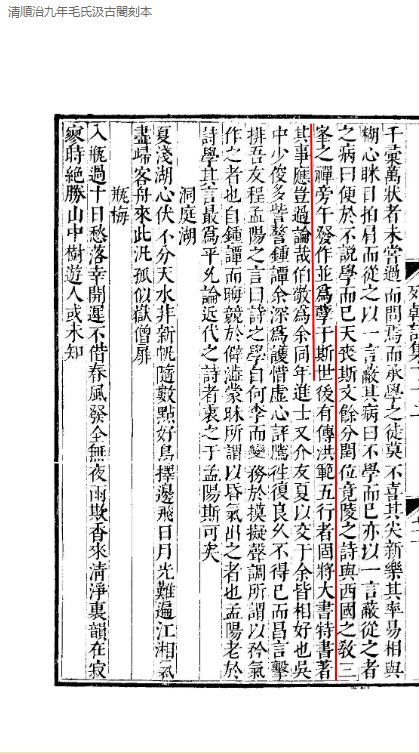 清順治九年毛氏汲古閣刻本
千彙萬狀者未嘗過而問焉而承學之徒莫不喜其尖新樂其率易相與
糊心眯目拍肩而從之以一言蔽其病曰不學而已亦以一言蔽從之者
之病曰便於不說學而已天喪斯文餘分閏位竟陵之詩與西國之敎三
峯之禪旁午發作並爲孽于斯世後有傳洪範五行者固將大書特書著
其事應豈過論哉伯敬爲余同年進士又介友夏以交于余皆相好也吳
中少俊多訾謷鍾譚余深爲護惜虛心評騭往復良久不得已而昌言擊
排吾友程孟陽之言曰詩之學自何李而變務於摸擬聲調所謂以矜氣
作之者也自鍾譚而晦競於僻澁蒙昧所謂以昏氣出之者也孟陽老於
詩學其言最爲平允論近代之詩者衷之于孟陽斯可矣
洞庭湖
夏淺湖心伏不分天水非新帆隨數點好鳥擇邊飛日月光難遍江湘氣
盡歸客舟來此汎孤似嶽僧扉
瓶梅
入瓶過十日愁落幸開遲不借春風發全無夜雨欺香來清淨裏韻在寂
寥時絶勝山中樹遊人或未知